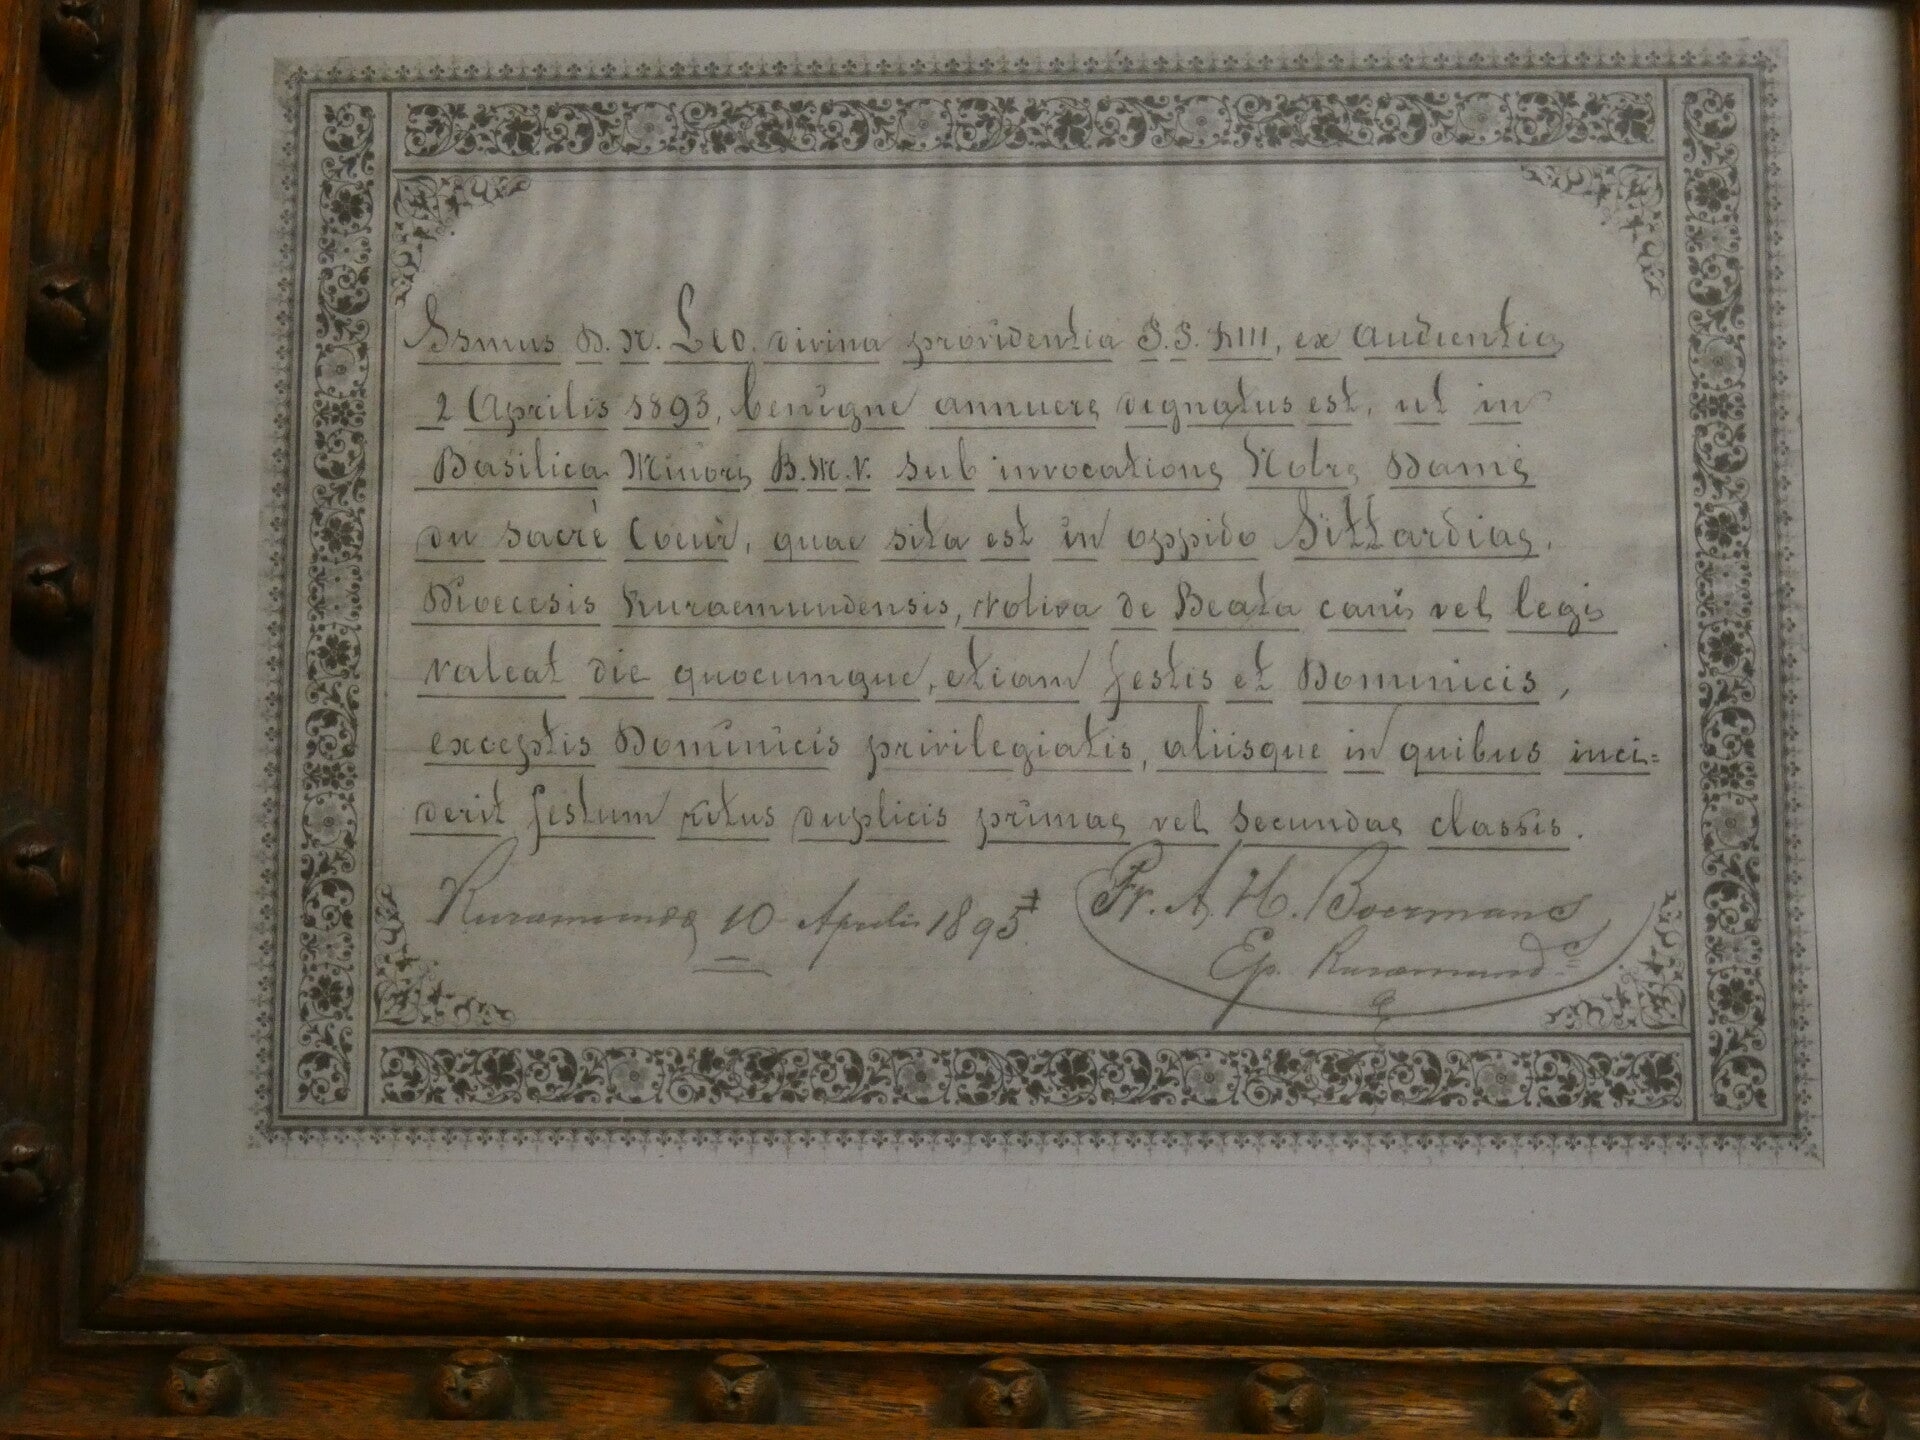 Ssmus D. N. Leo. divina providentia P. P. XIII, ex Audientia
2 Aprilis 1893, benigne annuere dignatus est, ut in
Basilica Minori B. M. V. sub invocatione Notre Dame
du Sacré Coeur, quae sita est in oppido Sittardiae,
Dioecesis Ruraemundensis, Votiva de Beata cani vel legi
valeat die quocumque, etiam festis et Dominicis,
exceptis Dominicis privilegiatis, aliisque in quibus inci-
derit festum ritus duplicis primae vel secundae classis.
Ruraemundae 10 Aprilis 1893. Fr. A. H. Boermans
Ep. Ruraemund